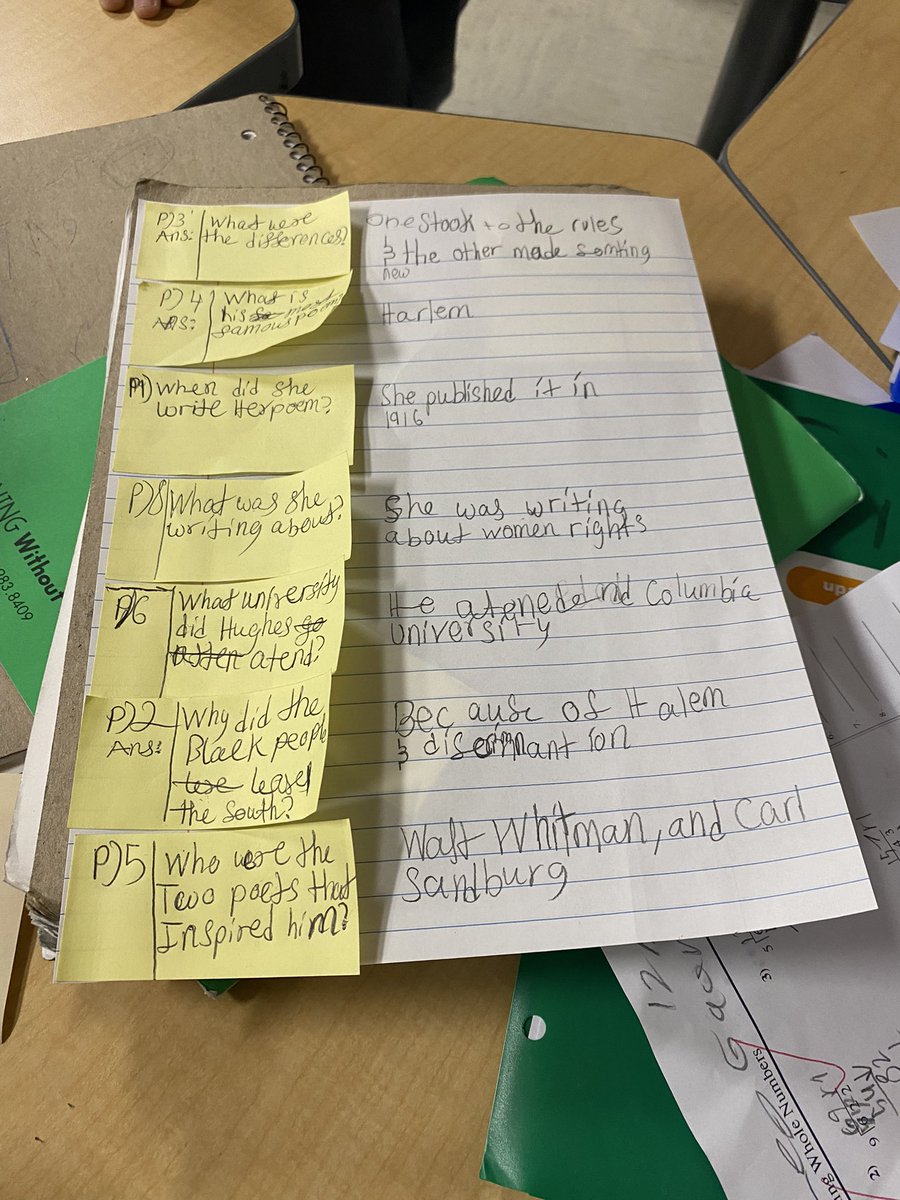 P)3 What were
Ans: the differences?
One stook to the rules
& the other made somting
new
P)4 What is
Ans: his so most
famous poem
Harlem
P1) When did she
write Her poem?
She published it in
1916
P)8 What was she
writing about?
She was writing
about women rights
P)6 What university
did Hughes go
atten atend?
He Columbia
University
P)2 Why did the
Ans: Black people
leave
the South?
Because of Halem
&
P)5 Who were the
Two poets that
Inspired him?
Walt Whitman, and Carl
Sandburg
NING Without
983 8409
ing Whole Numbers
3)
2) 9